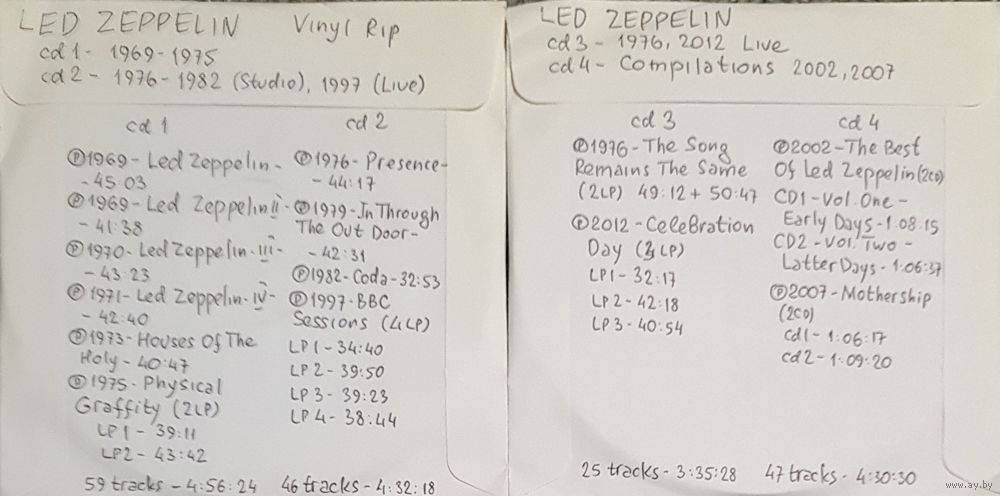 LED ZEPPELIN Vinyl Rip
cd 1 - 1969-1975
cd 2 - 1976-1982 (Studio), 1997 (Live)
cd 1
Ⓟ1969-Led Zeppelin-
-45:03
Ⓟ1969-Led Zeppelin II-
-41:38
Ⓟ1970-Led Zeppelin-III-
-43:23
Ⓟ1971-Led Zeppelin-IV-
-42:40
Ⓟ1973-Houses Of The
Holy-40:47
Ⓟ1975-Physical
Graffity (2LP)
LP1-39:11
LP2-43:42
59 tracks-4:56:24
cd 2
Ⓟ1976-Presence-
-44:17
Ⓟ1979-In Through
The Out Door-
-42:31
Ⓟ1982-Coda-32:53
Ⓟ1997-BBC
Sessions (4LP)
LP1-34:40
LP2-39:50
LP3-39:23
LP4-38:44
46 tracks-4:32:18
LED ZEPPELIN
cd 3 - 1976, 2012 Live
cd 4 - Compilations 2002, 2007
cd 3
Ⓟ1976-The Song
Remains The Same
(2LP) 49:12+50:47
Ⓟ2012-Celebration
Day (3LP)
LP1-32:17
LP2-42:18
LP3-40:54
25 tracks-3:35:28
cd 4
Ⓟ2002-The Best
Of Led Zeppelin (2CD)
CD1-Vol.One-
Early Days-1:08:15
CD2-Vol.Two-
Latter Days-1:06:37
Ⓟ2007-Mothership
(2CD)
cd1-1:06:17
cd2-1:09:20
47 tracks-4:30:30
www.ay.by